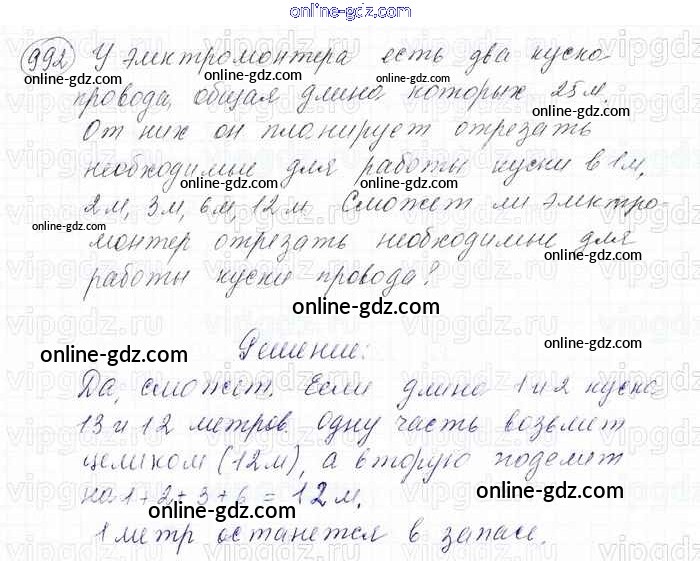 online-gdz.com
992 У электромонтера есть два куска
online-gdz.com
провода, общая длина которых 25 м.
online-gdz.com online-gdz.com
От них он планирует отрезать
необходимые для работы куски в 1 м,
online-gdz.com online-gdz.com
2 м, 3 м, 6 м, 12 м Сможет ли электро-
online-gdz.com
монтер отрезать необходимые для
работы куски провода?
online-gdz.com
online-gdz.com
online-gdz.com
Решение:
Да, сможет. Если длина 1 и 2 куска
13 и 12 метров. Одну часть возьмет
целиком (12 м), а вторую поделит
на 1 + 2 + 3 + 6 = 12 м.
online-gdz.com
online-gdz.com
1 метр останется в запасе.